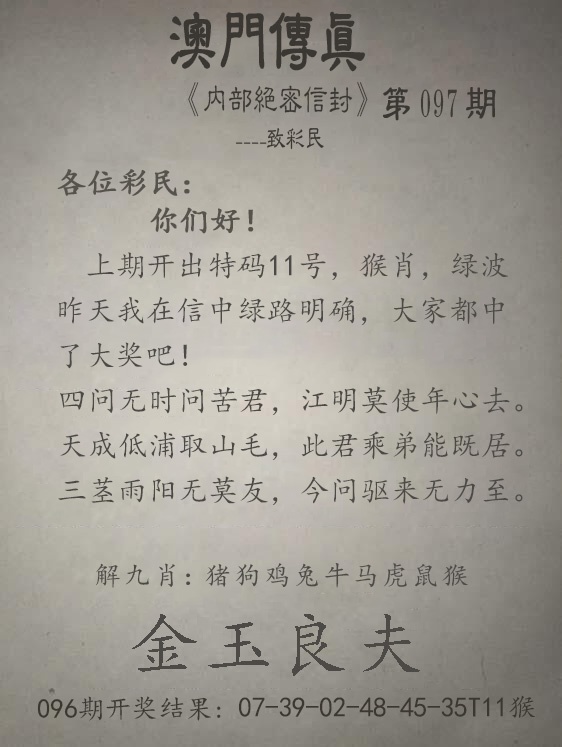 澳門傳眞
《内部絕密信封》第097期
----致彩民
各位彩民：
你们好！
上期开出特码11号，猴肖，绿波
昨天我在信中绿路明确，大家都中
了大奖吧！
四问无时问苦君，江明莫使年心去。
天成低浦取山毛，此君乘弟能既居。
三茎雨阳无莫友，今问驱来无力至。
解九肖：猪狗鸡兔牛马虎鼠猴
金玉良夫
096期开奖结果：07-39-02-48-45-35T11猴